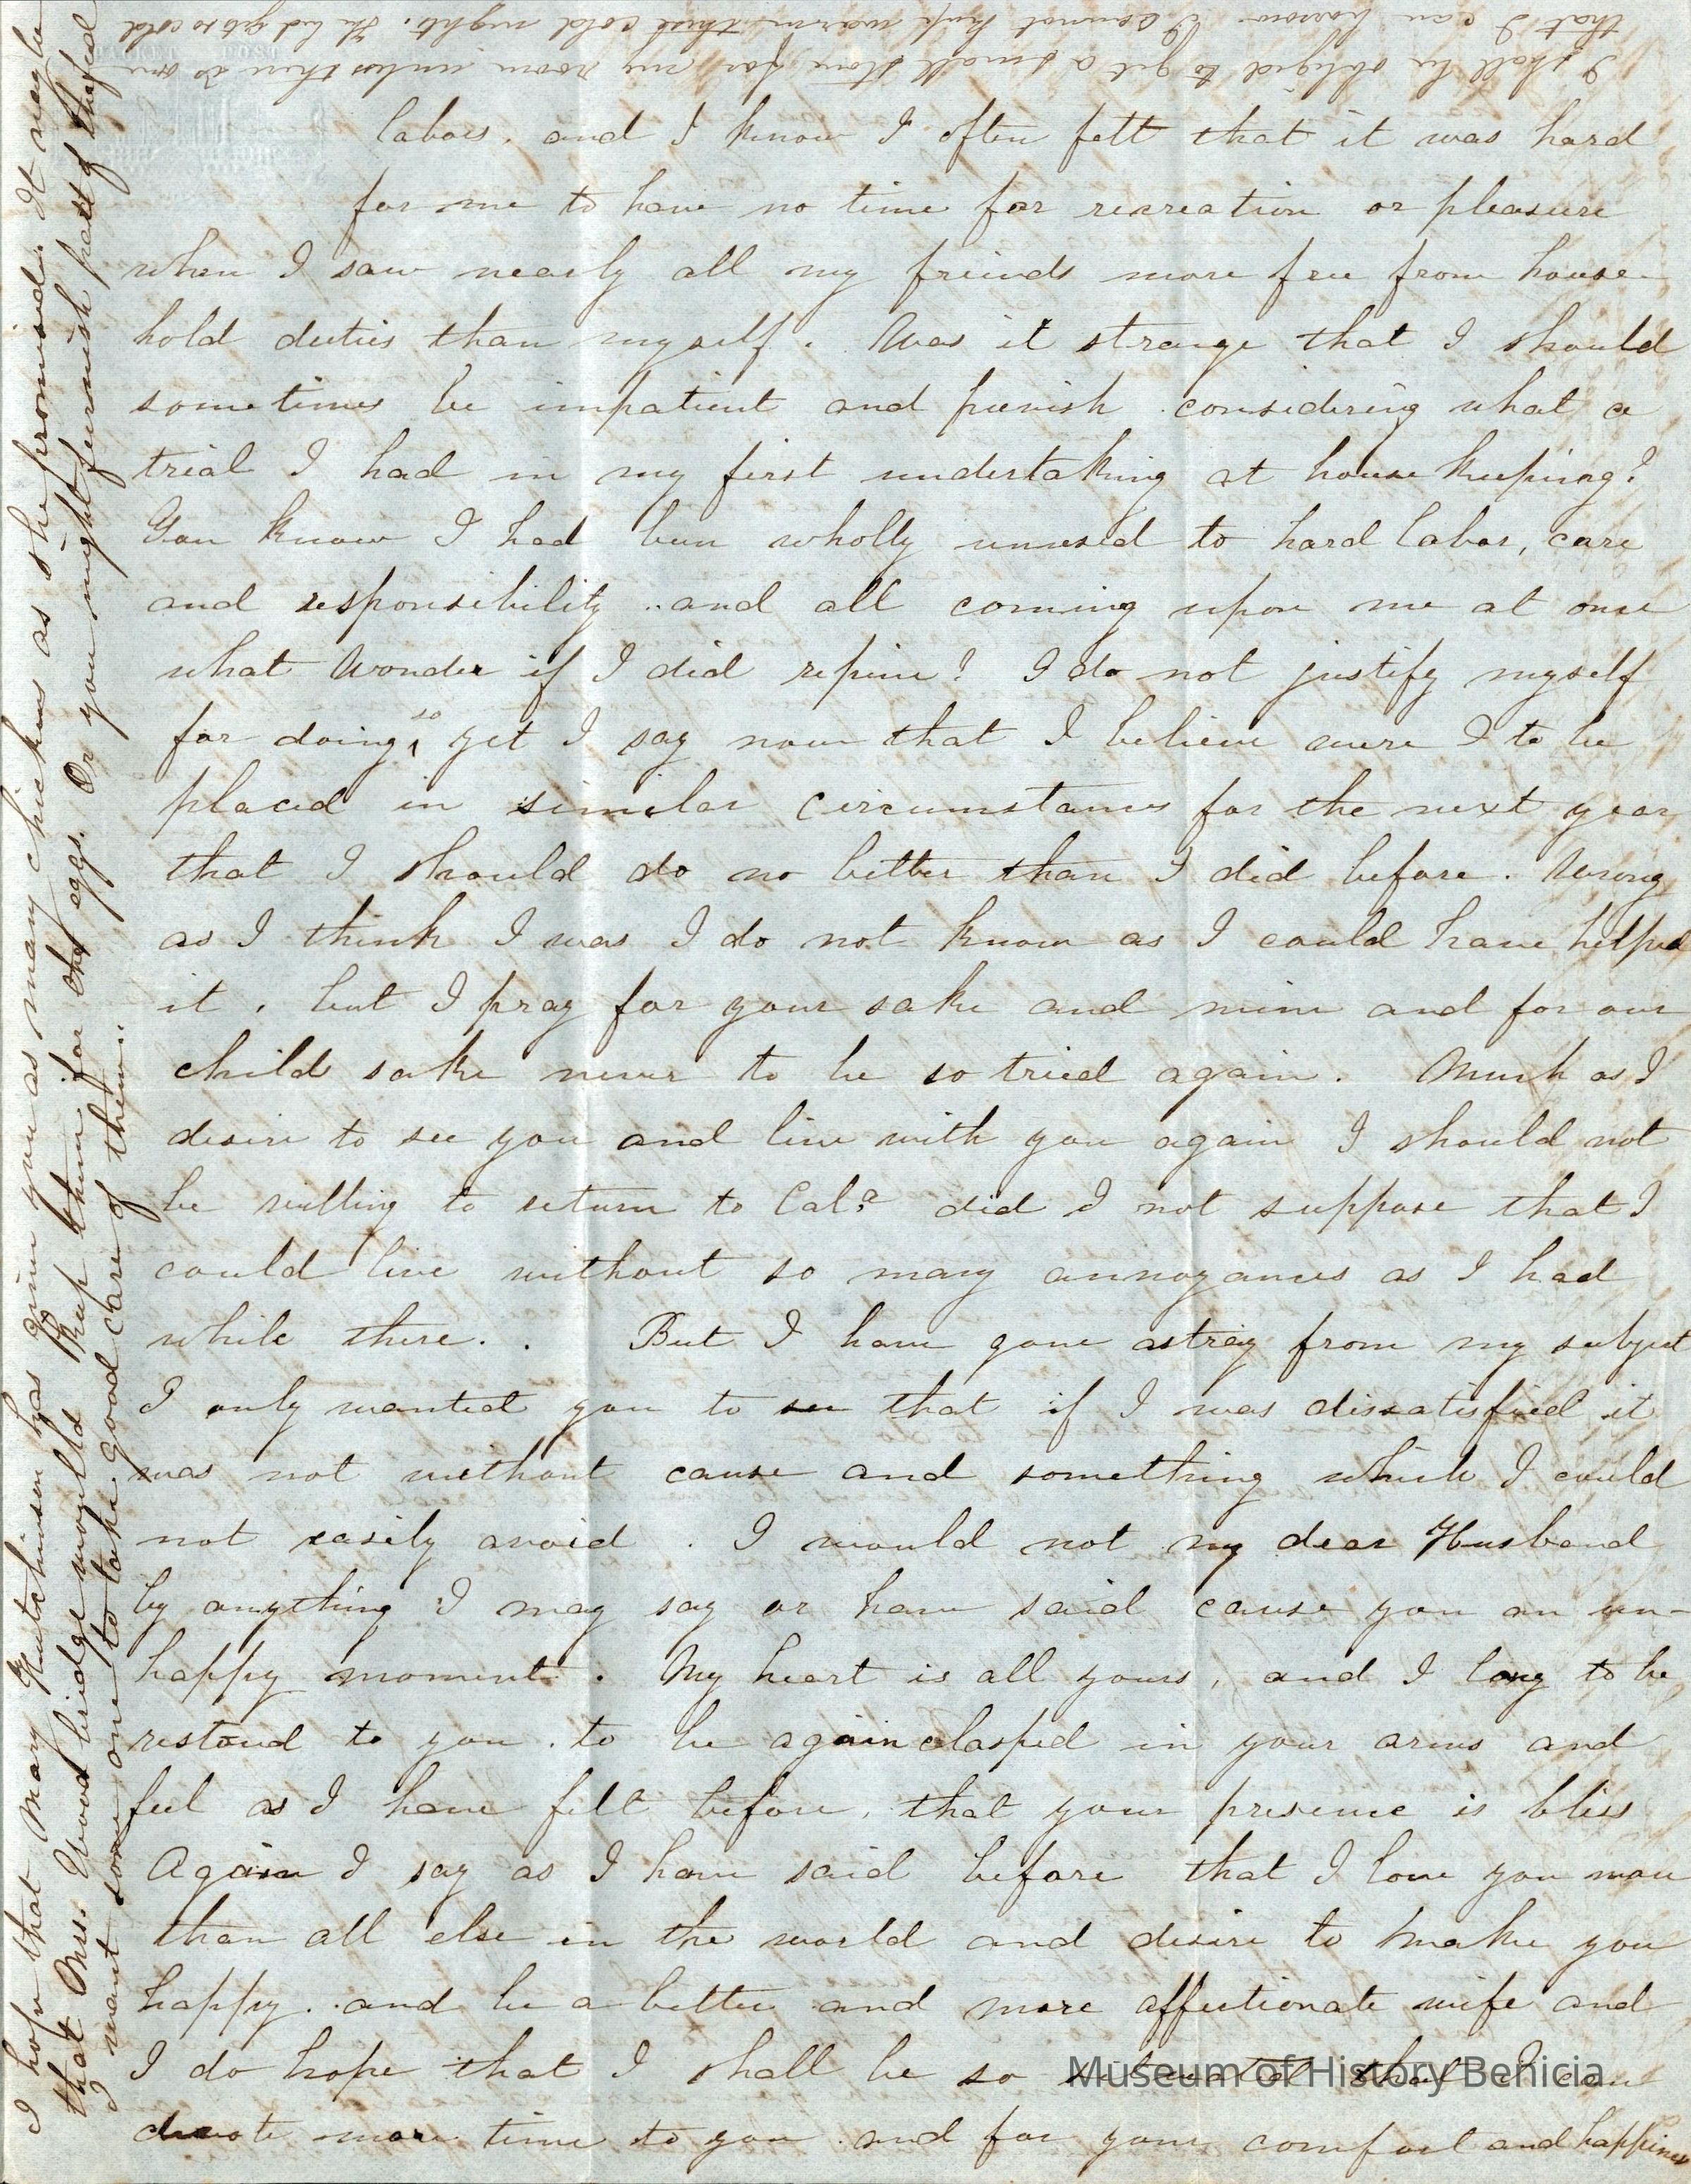 labors, and I know I often felt that it was hard
for me to have no time for recreation or pleasure
when I saw nearly all my friends more free from house-
hold duties than myself. Was it strange that I should
sometimes be impatient and peevish considering what a
trial I had in my first undertaking at house keeping?
You know I had been wholly unused to hard labor, care
and responsibility .. and all coming upon me at once
what wonder if I did repine? I do not justify myself
for doing so yet I say now that I believe were I to be
placed in similar circumstances for the next year
that I should do no better than I did before. Wrong
as I think I was I do not know as I could have helped
it, but I pray for your sake and mine and for our
child sake never to be so tried again. Much as I
desire to see you and live with you again I should not
be willing to return to Cal? did I not suppose that I
could live without so many annoyances as I had
while there. . But I have gone astray from my subject
I only wanted you to see that if I was dissatisfied it
was not without cause and something which I could
not easily avoid. I would not my dear Husband
by anything I may say or have said cause you an un-
happy moment. My heart is all yours, and I long to be
restored to you. to be again clasped in your arms and
feel as I have felt before, that your presence is bliss
Again I say as I have said before that I love you more
than all else in the world and desire to make you
happy. and be a better and more affectionate wife and
I do hope that I shall be so situated that I can
devote more time to you and for your comfort and happiness
I shall be obliged to get a small stove for my room unless there is one
that I can borrow. I cannot keep warm these cold nights. The bed gets so cold
I hope that Mary Hutchinson has given you as many chickens as she promised. It might be
that Mrs. Woodbridge would keep them for the eggs. Or you might furnish part of the feed
I want some one to take good care of them.
Museum of History Benicia